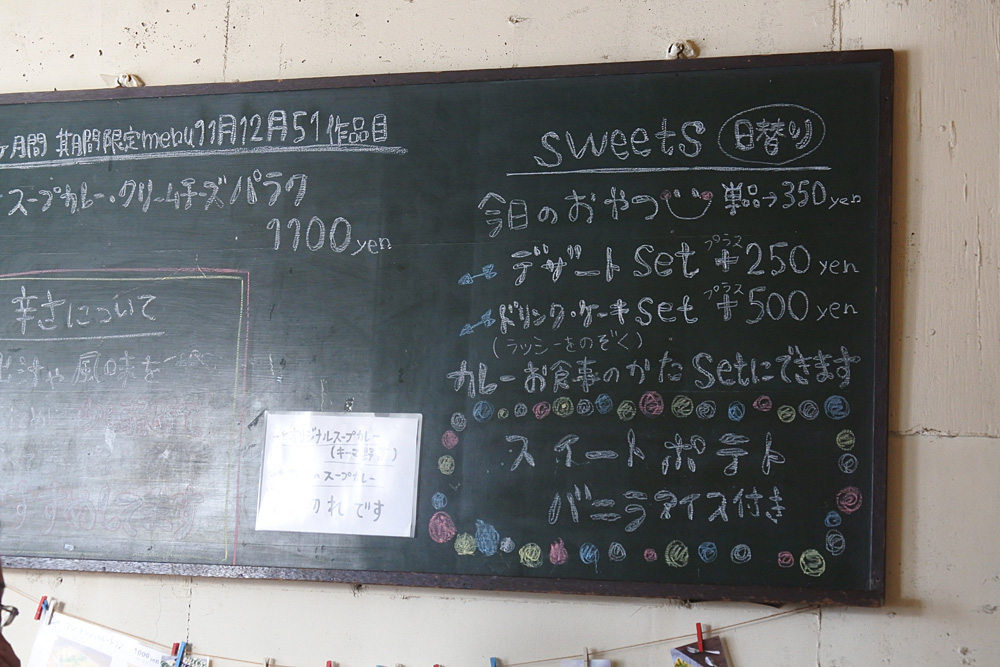 ヶ月間 期間限定menu11月12月51作品目
スープカレー・クリームチーズパラク
1100yen
辛さについて
風味を
sweets 日替り
今日のおやつ 単品→350yen
デザートset プラス+250yen
ドリンク・ケーキset プラス+500yen
(ラッシーをのぞく)
カレーお食事のかたsetにできます
スイートポテト
バニラアイス付き
オリジナルスープカレー
(キーマ野
スープカレー
切れです